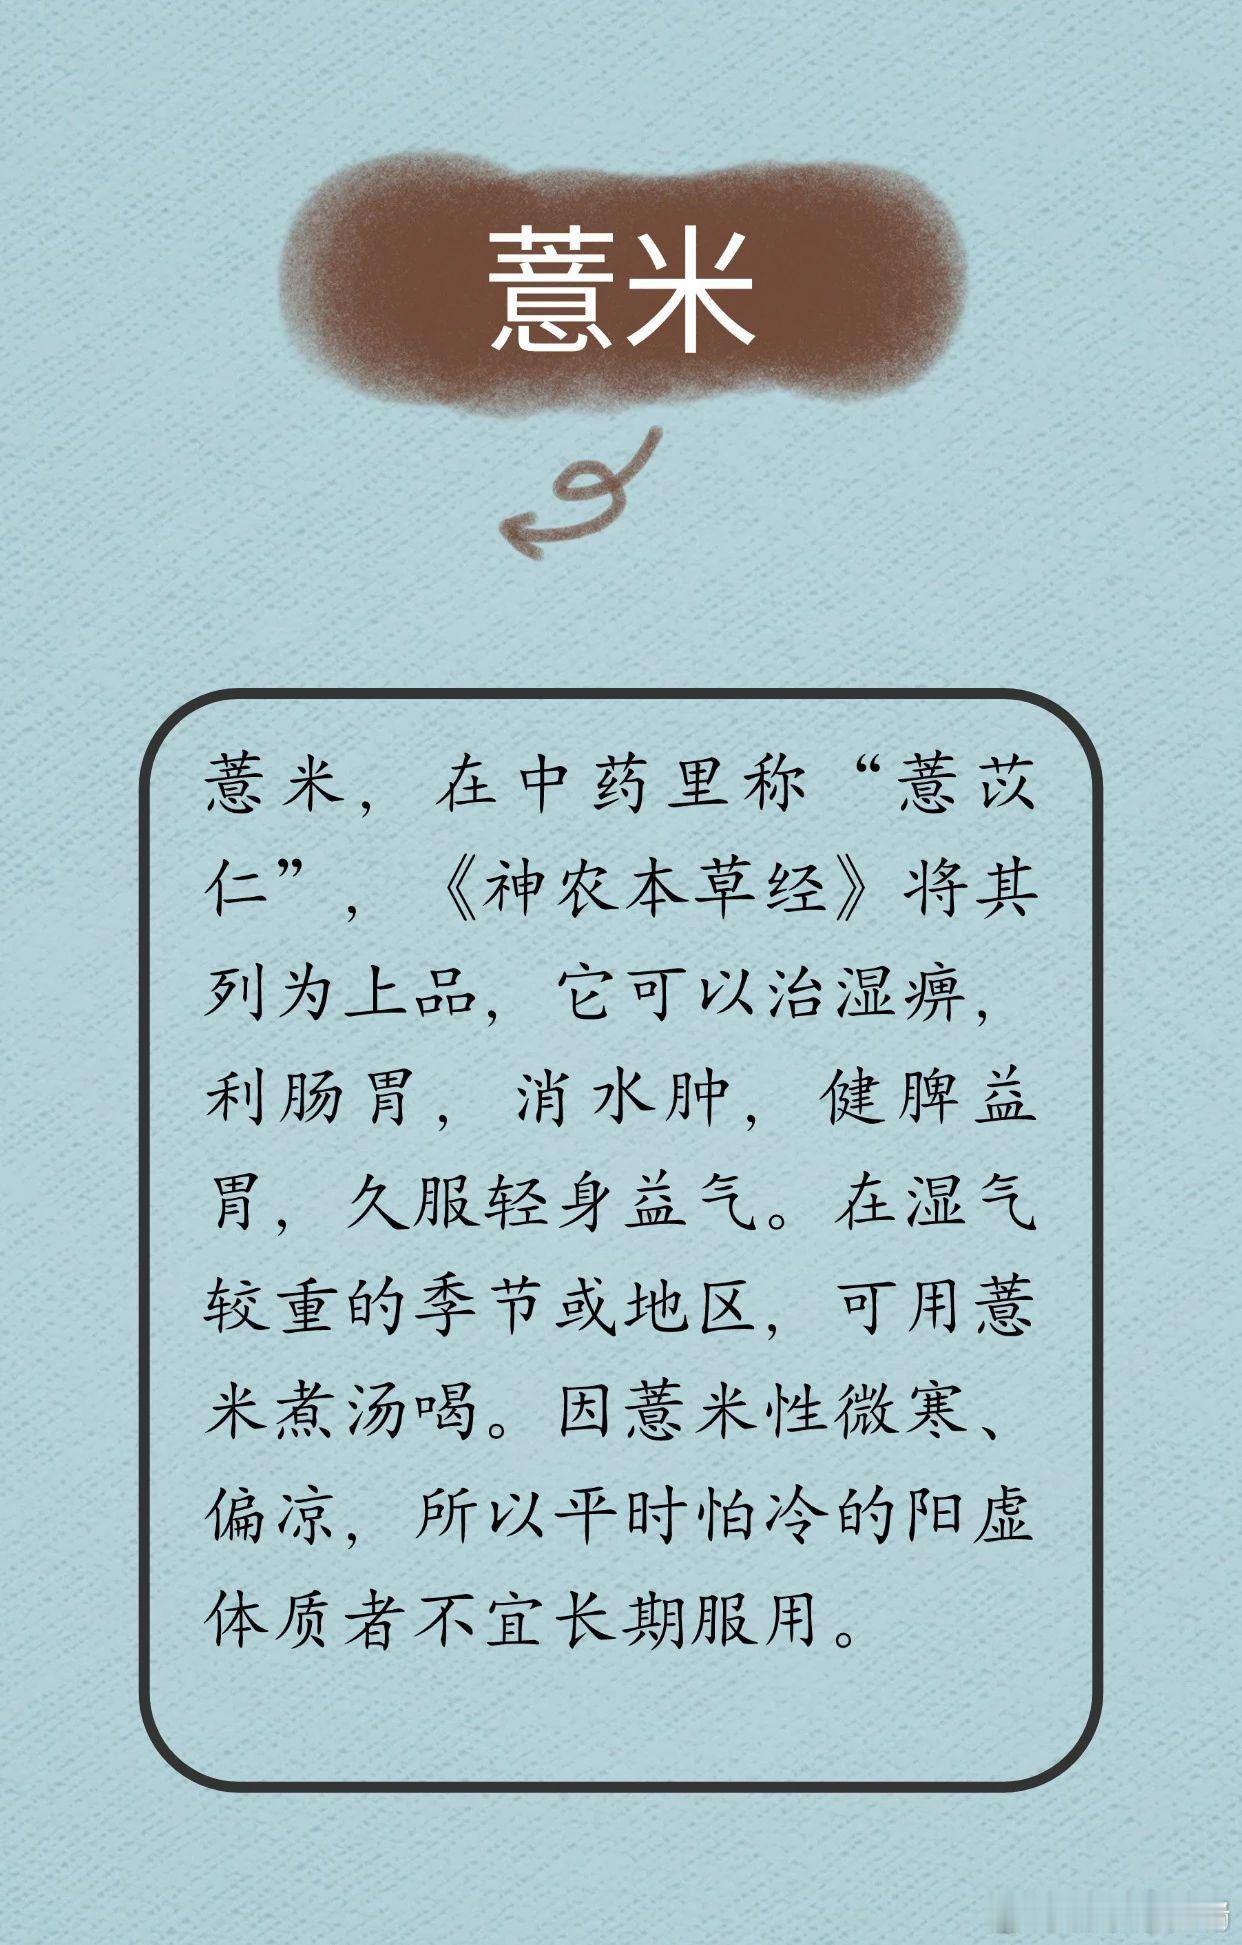 薏米
薏米，在中药里称“薏苡
仁”，《神农本草经》将其
列为上品，它可以治湿痹，
利肠胃，消水肿，健脾益
胃，久服轻身益气。在湿气
较重的季节或地区，可用薏
米煮汤喝。因薏米性微寒、
偏凉，所以平时怕冷的阳虚
体质者不宜长期服用。